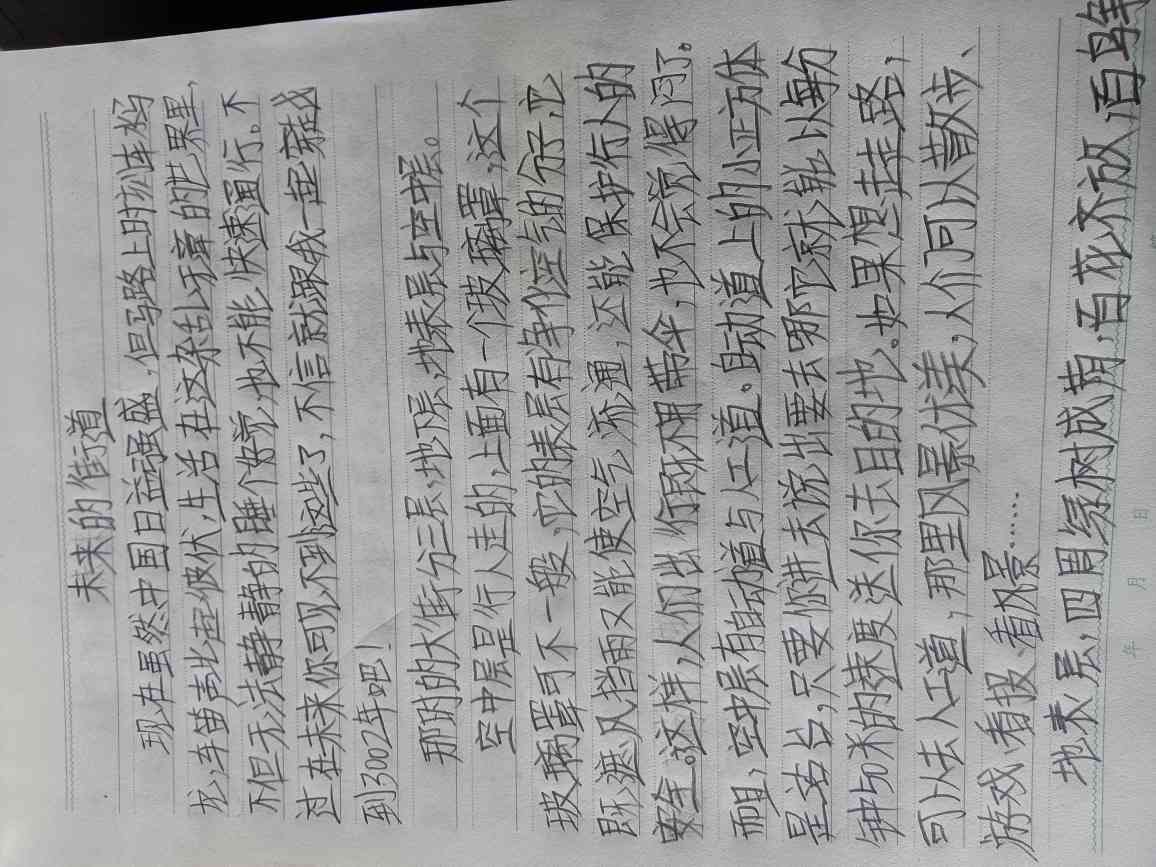 未来的街道
现在虽然中国日益强盛,但马路上时刻车水
龙,车笛声此起彼伏,生活在这杂乱无章的世界里,
不但无法静静的睡个好觉,也不能快速通行。不
过在未来你可见不到这些了,不信就跟我一起穿越
到3002年吧!
那时的大街分三层,地下层,地表层与空中层。
空中层是行人走的,上面有一个玻璃罩,这个
玻璃罩可不一般,它的表层有净化空气的分子,它
既遮风挡雨又能使空气流通,还能保护行人的
安全。这样,人们出门既不用带伞,也不会觉得闷了。
而且,空中层有自动道与人工道。自动道上的小正方体
是站台,只要你进去说出要去哪它就会以每分
钟50米的速度送你去目的地。如果想走路,
可以去人工道,那里风景优美,人们可以散步、
游戏、看报、看风景……
地表层,四周绿树成荫,百花齐放,百鸟争
年 月 日